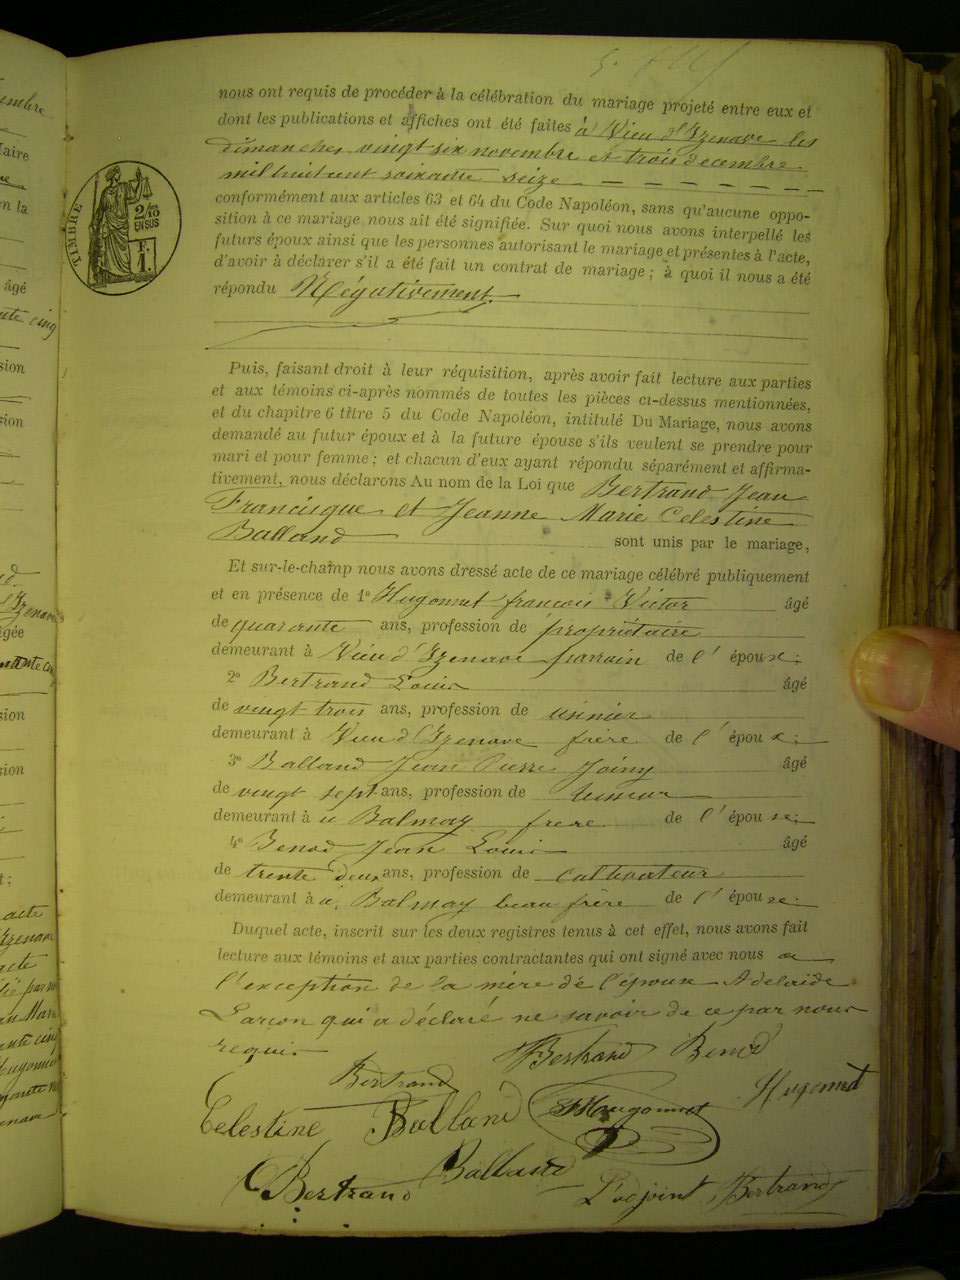 nous ont requis de procéder à la célébration du mariage projeté entre eux et
dont les publications et affiches ont été faites à Vieu d'Izenave les
dimanches vingt six novembre et trois decembre
mil huit cent soixante seize
conformément aux articles 63 et 64 du Code Napoléon, sans qu'aucune oppo-
sition à ce mariage nous ait été signifiée. Sur quoi nous avons interpellé les
futurs époux ainsi que les personnes autorisant le mariage et présentes à l'acte,
d'avoir à déclarer s'il a été fait un contrat de mariage; à quoi il nous a été
répondu Négativement.
TIMBRE
2/10
EN SUS
F.
1.
Puis, faisant droit à leur réquisition, après avoir fait lecture aux parties
et aux témoins ci-après nommés de toutes les pièces ci-dessus mentionnées,
et du chapitre 6 titre 5 du Code Napoléon, intitulé Du Mariage, nous avons
demandé au futur époux et à la future épouse s'ils veulent se prendre pour
mari et pour femme; et chacun d'eux ayant répondu séparément et affirma-
tivement, nous déclarons Au nom de la Loi que Bertrand Jean
Francisque et Jeanne Marie Celestine
Balland sont unis par le mariage,
Et sur-le-champ nous avons dressé acte de ce mariage célébré publiquement
et en présence de 1º Hugonnet francois Victor âgé
de quarante ans, profession de propriétaire
demeurant à Vieu d'Izenave parrain de l'époux;
2º Bertrand Louis âgé
de vingt trois ans, profession de
demeurant à Vieu d'Izenave frère de l'époux;
3º Balland Jean Pierre Joiny âgé
de vingt sept ans, profession de
demeurant à a Balmay frere de l'épouse;
4º Benod Jean Louis âgé
de trente deux ans, profession de cultivateur
demeurant à à Balmay beau frère de l'épouse
Duquel acte, inscrit sur les deux registres tenus à cet effet, nous avons fait
lecture aux témoins et aux parties contractantes qui ont signé avec nous a
l'exception de la mère de l'époux Adelaide
Larcon qui a déclaré ne savoir de ce par nous
requis
Bertrand Bertrand Benod
Celestine Balland Hugonnet Hugonnet
Bertrand Balland L'adjoint Bertrand